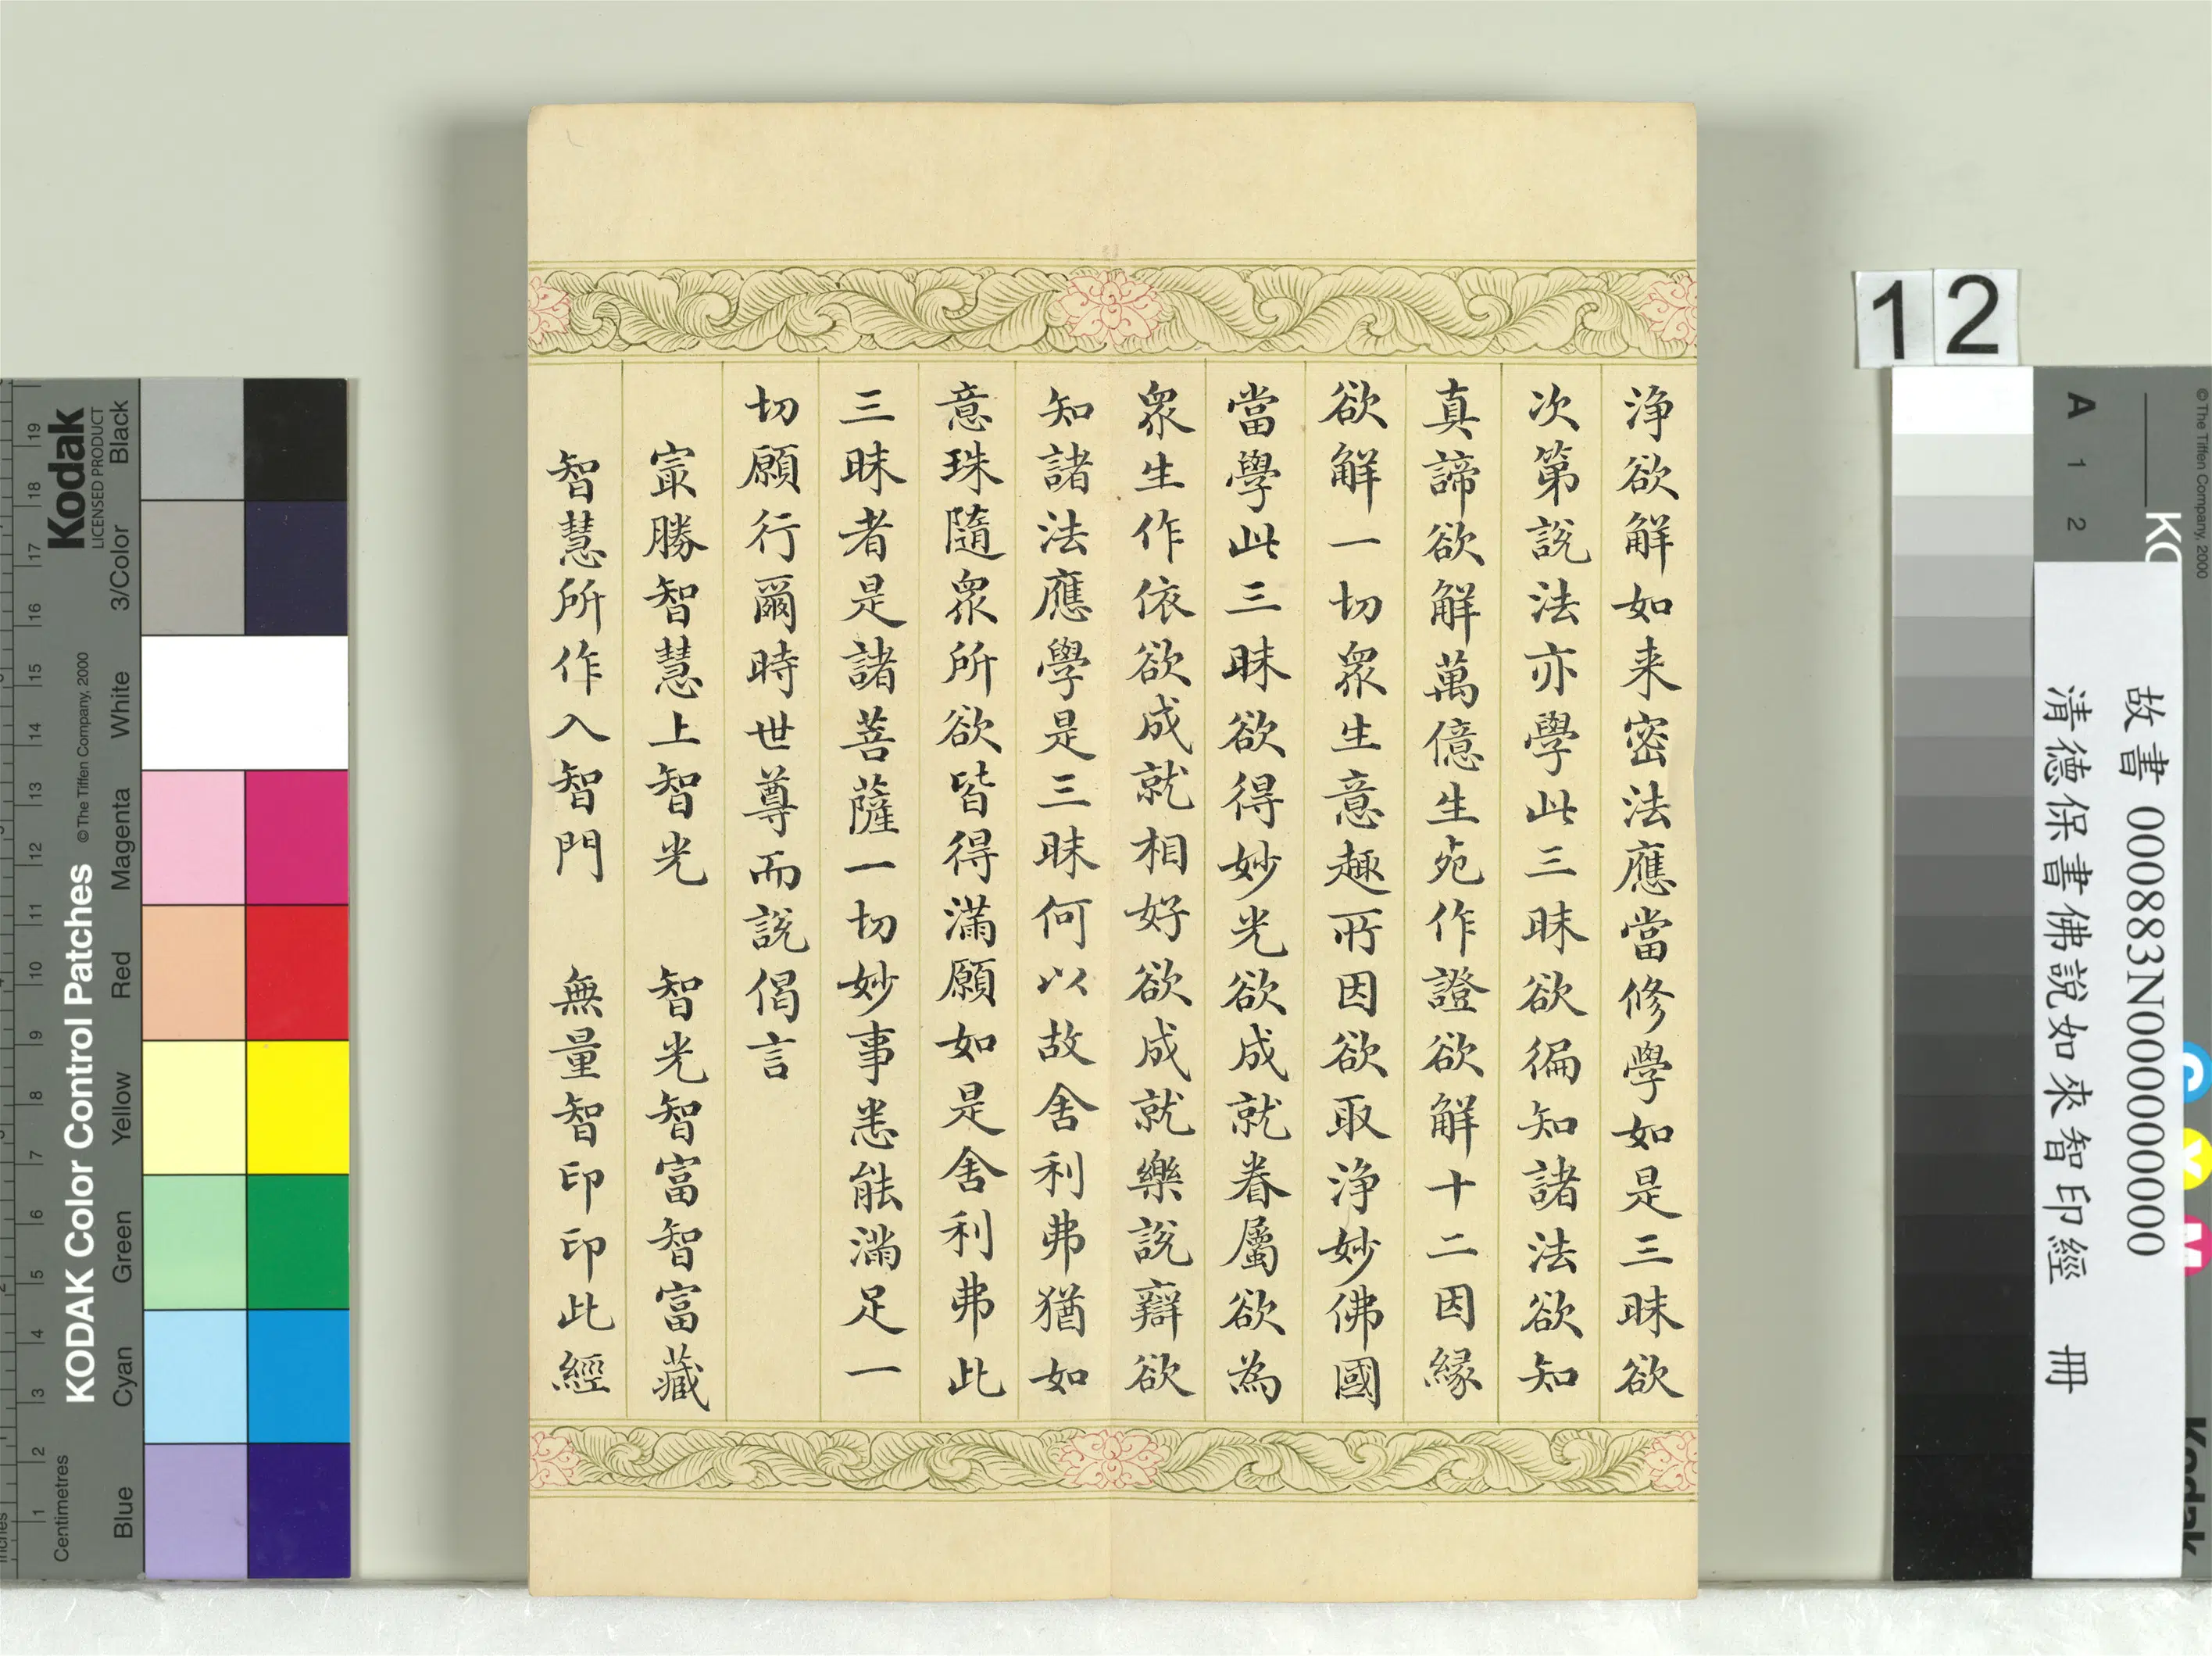 淨欲解如来密法應當修學如是三昧欲
次第說法亦學此三昧欲徧知諸法欲知
真諦欲解萬億生死作證欲解十二因緣
欲解一切眾生意趣所因欲取淨妙佛國
當學此三昧欲得妙光欲成就眷屬欲為
眾生作依欲成就相好欲成就樂說辯欲
知諸法應學是三昧何以故舍利弗猶如
意珠隨眾所欲皆得滿願如是舍利弗此
三昧者是諸菩薩一切妙事悉能滿足一
切願行爾時世尊而說偈言
寂勝智慧上智光　智光智富智富藏
智慧所作入智門　無量智印印此經
12
故書 000883N000000000
清德保書佛說如來智印經　冊
A 1 2
© The Tiffen Company, 2000
Kodak
LICENSED PRODUCT
KODAK Color Control Patches © The Tiffen Company, 2000
Black
3/Color
White
Magenta
Red
Yellow
Green
Cyan
Blue
Centimetres
1 2 3 4 5 6 7 8 9 10 11 12 13 14 15 16 17 18 19
C
Y
M
Kodak